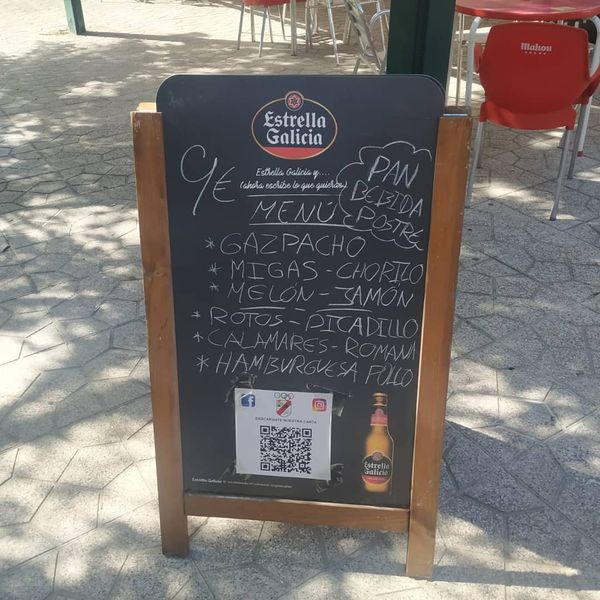 Mahou
Estrella
Galicia
Estrella Galicia y....
(ahora escribe lo que quieras)
9€
PAN
BEBIDA
POSTRE
MENÚ
* GAZPACHO
* MIGAS - CHORIZO
* MELÓN - JAMÓN
* ROTOS - PICADILLO
* CALAMARES - ROMANA
* HAMBURGUESA POLLO
DESCARGATE NUESTRA CARTA
Estrella
Galicia